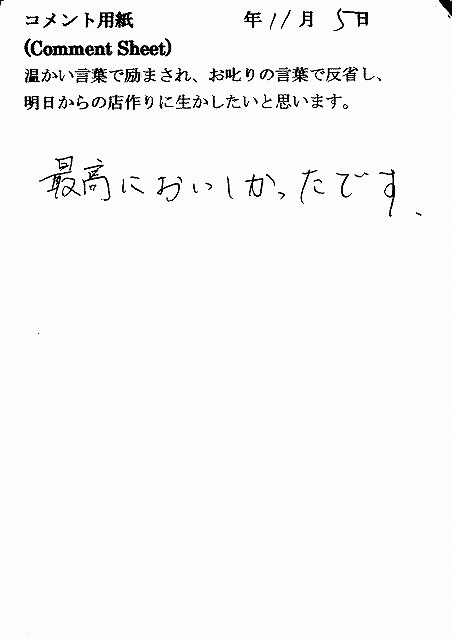 コメント用紙 年 11月 5日
(Comment Sheet)
温かい言葉で励まされ、お叱りの言葉で反省し、
明日からの店作りに生かしたいと思います。
最高においしかったです.